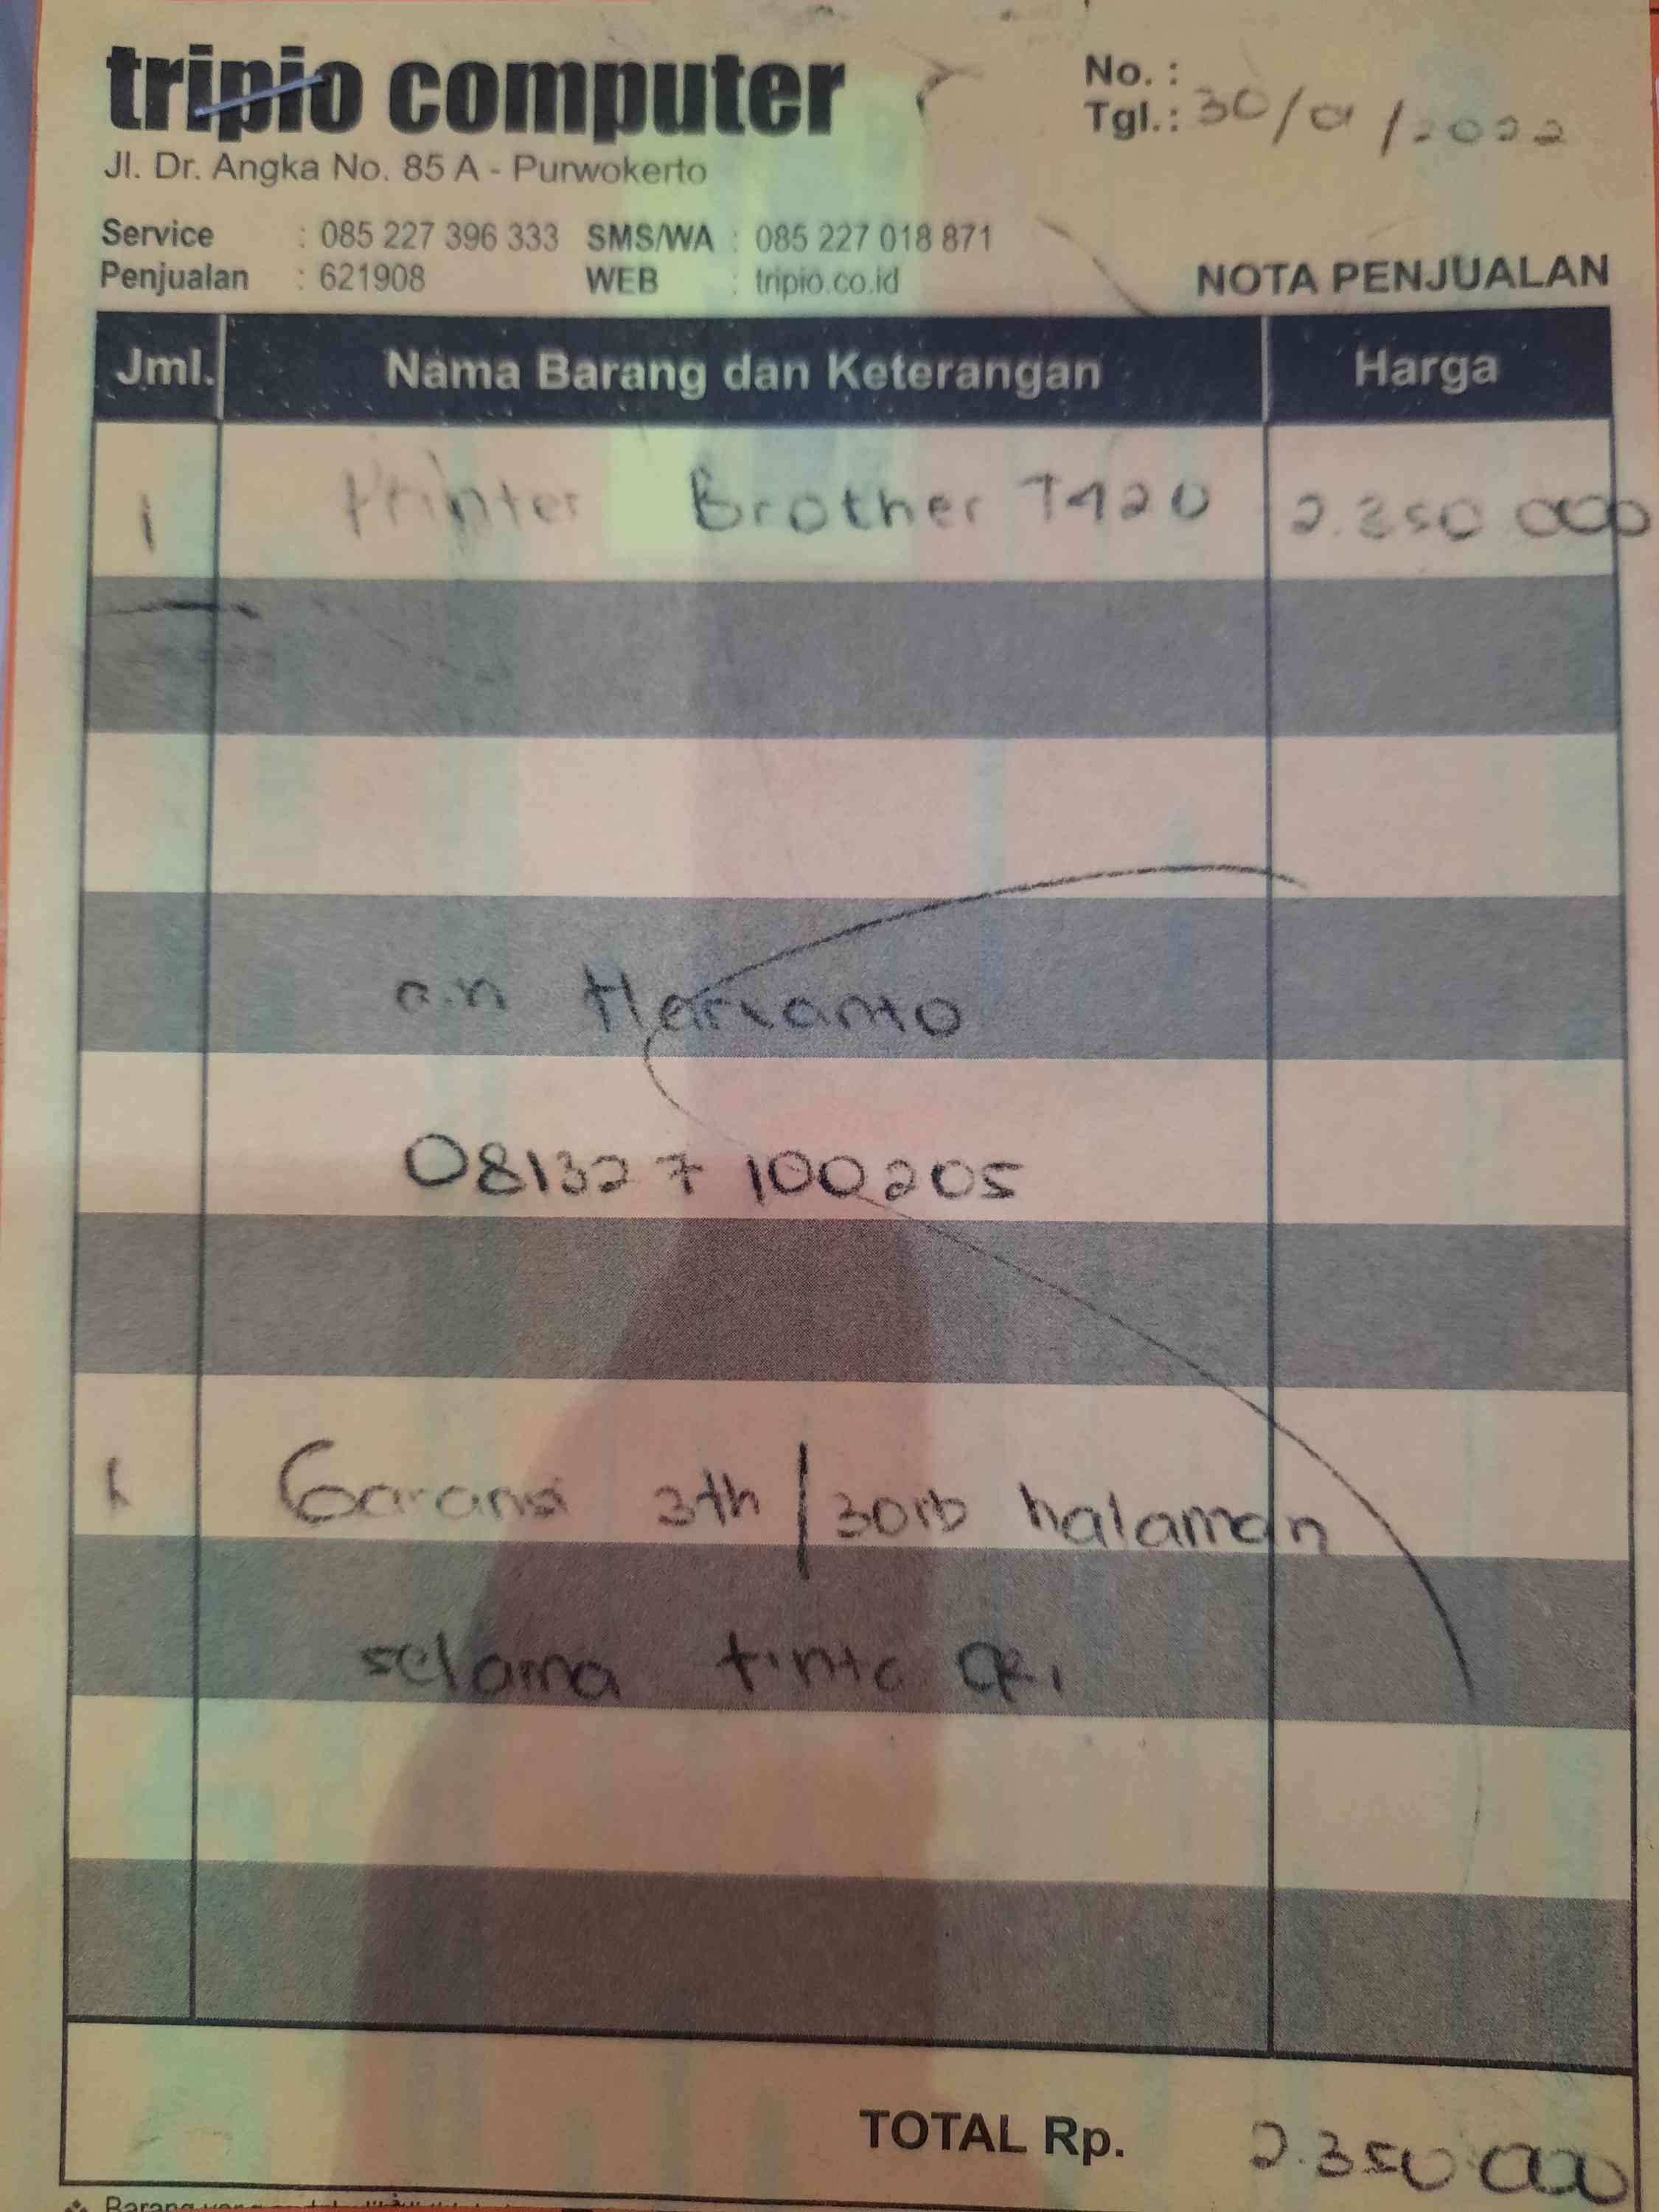 tripio computer
Jl. Dr. Angka No. 85 A - Purwokerto
No. :
Tgl.: 30/01/2022
Service : 085 227 396 333 SMS/WA : 085 227 018 871
Penjualan : 621908 WEB : tripio.co.id
NOTA PENJUALAN
Jml. Nama Barang dan Keterangan Harga
1 Printer Brother T420 2.350 000
a.n
081327 100205
Garansi 3th | 30rb halaman
selama tinta ORI
TOTAL Rp. 2.350 000
Barang yang